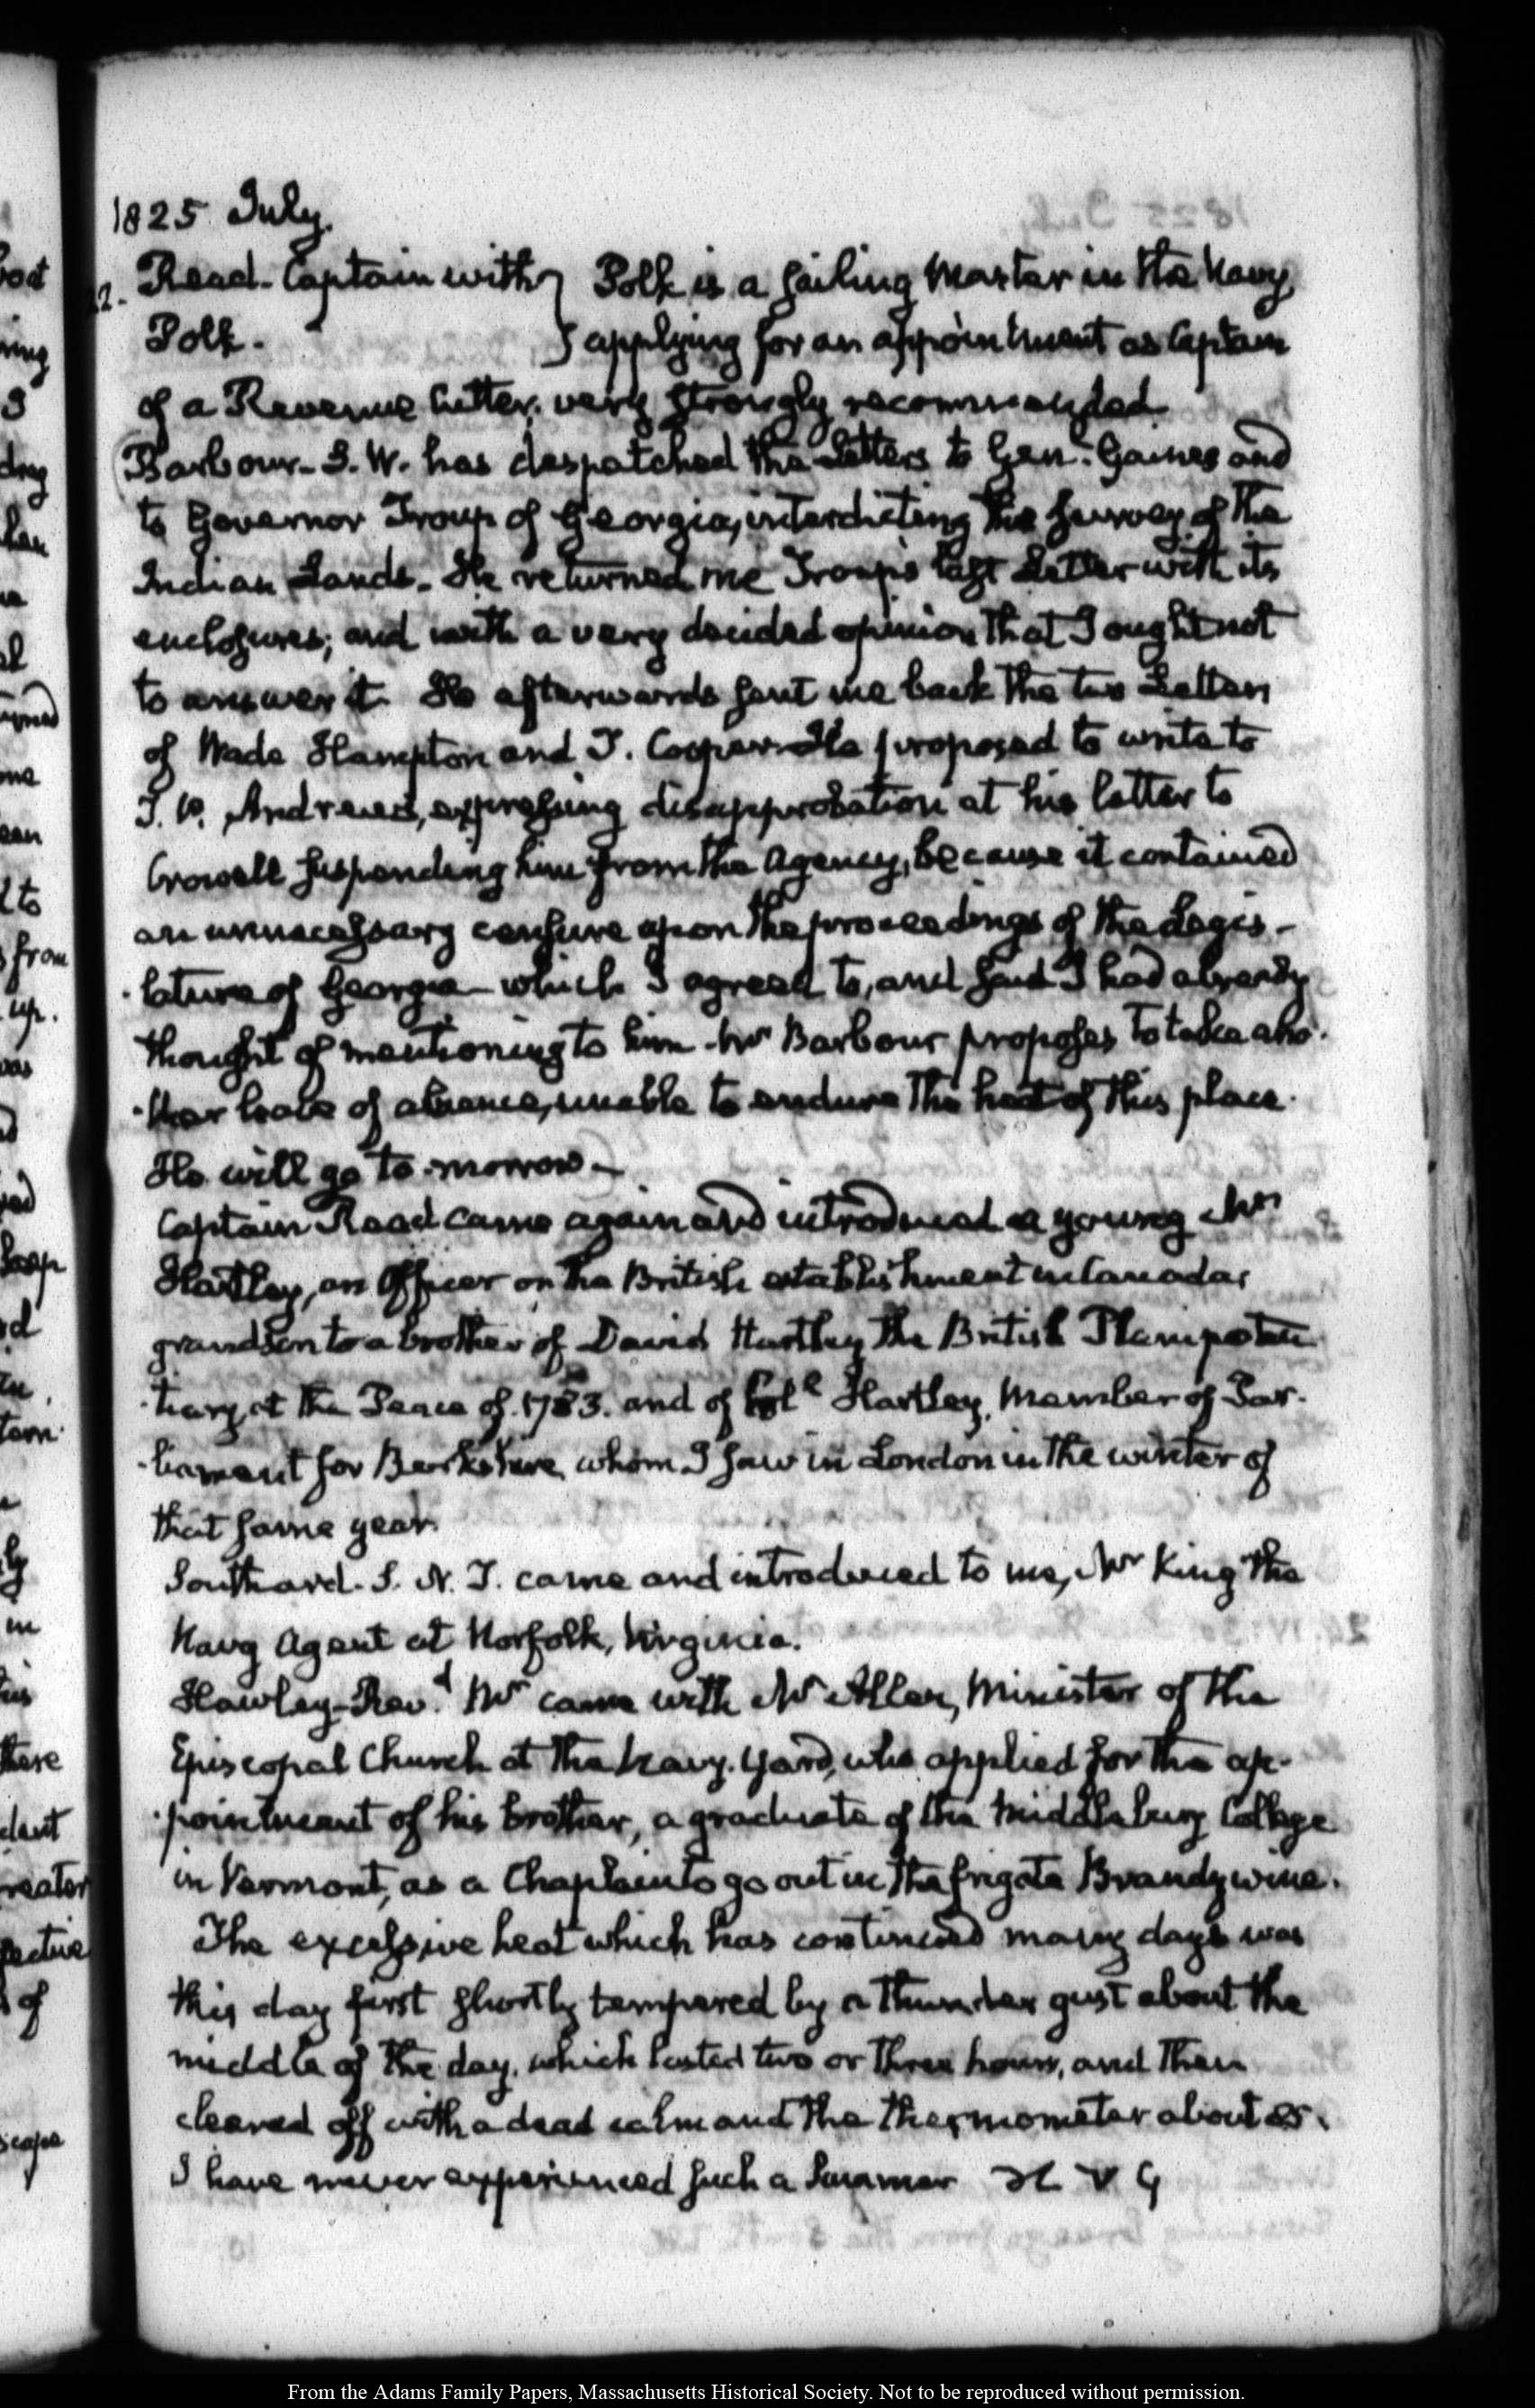 1825 July.
22. Read- Captain with } Polk is a Sailing Master in the Navy,
Polk. } applying for an appointment as Captain
of a Revenue Cutter, very strongly recommended.
Barbour- S. W. has despatched the Letters to Genl. Gaines and
to Governor Troup of Georgia, interdicting the survey of the
Indian Lands. He returned me Troup's last Letter with its
enclosures; and with a very decided opinion that I ought not
to answer it. He afterwards sent me back the two Letters
of Wade Hampton and T. Cooper. He proposed to write to
T. P. Andrews, expressing disapprobation at his letter to
Crowell suspending him from the Agency, because it contained
an unnecessary censure upon the proceedings of the Legis-
lature of Georgia- which I agreed to, and said I had already
thought of mentioning to him. Mr Barbour proposes to take ano-
-ther leave of absence, unable to endure the heat of this place.
He will go to-morrow.-
Captain Read came again and introduced a young Mr
Hartley, an Officer on the British establishment in Canada;
grandson to a brother of David Hartley the British Plenipoten-
-tiary at the Peace of 1783. and of Coll. Hartley, Member of Par-
-liament for Berkshire, whom I saw in London in the winter of
that same year.
Southard. S. N. T. came and introduced to me, Mr King the
Navy Agent at Norfolk, Virginia.
Hawley- Revd. Mr came with Mr Allen, Minister of the
Episcopal Church at the Navy-Yard, who applied for the ap-
-pointment of his brother, a graduate of the Middlebury College
in Vermont, as a Chaplain to go out in the frigate Brandywine.
The excessive heat which has continued many days was
this day first shortly tempered by a Thunder gust about the
middle of the day, which lasted two or three hours, and then
cleared off with a dead calm and the thermometer about 85.
I have never experienced such a Summer
From the Adams Family Papers, Massachusetts Historical Society. Not to be reproduced without permission.